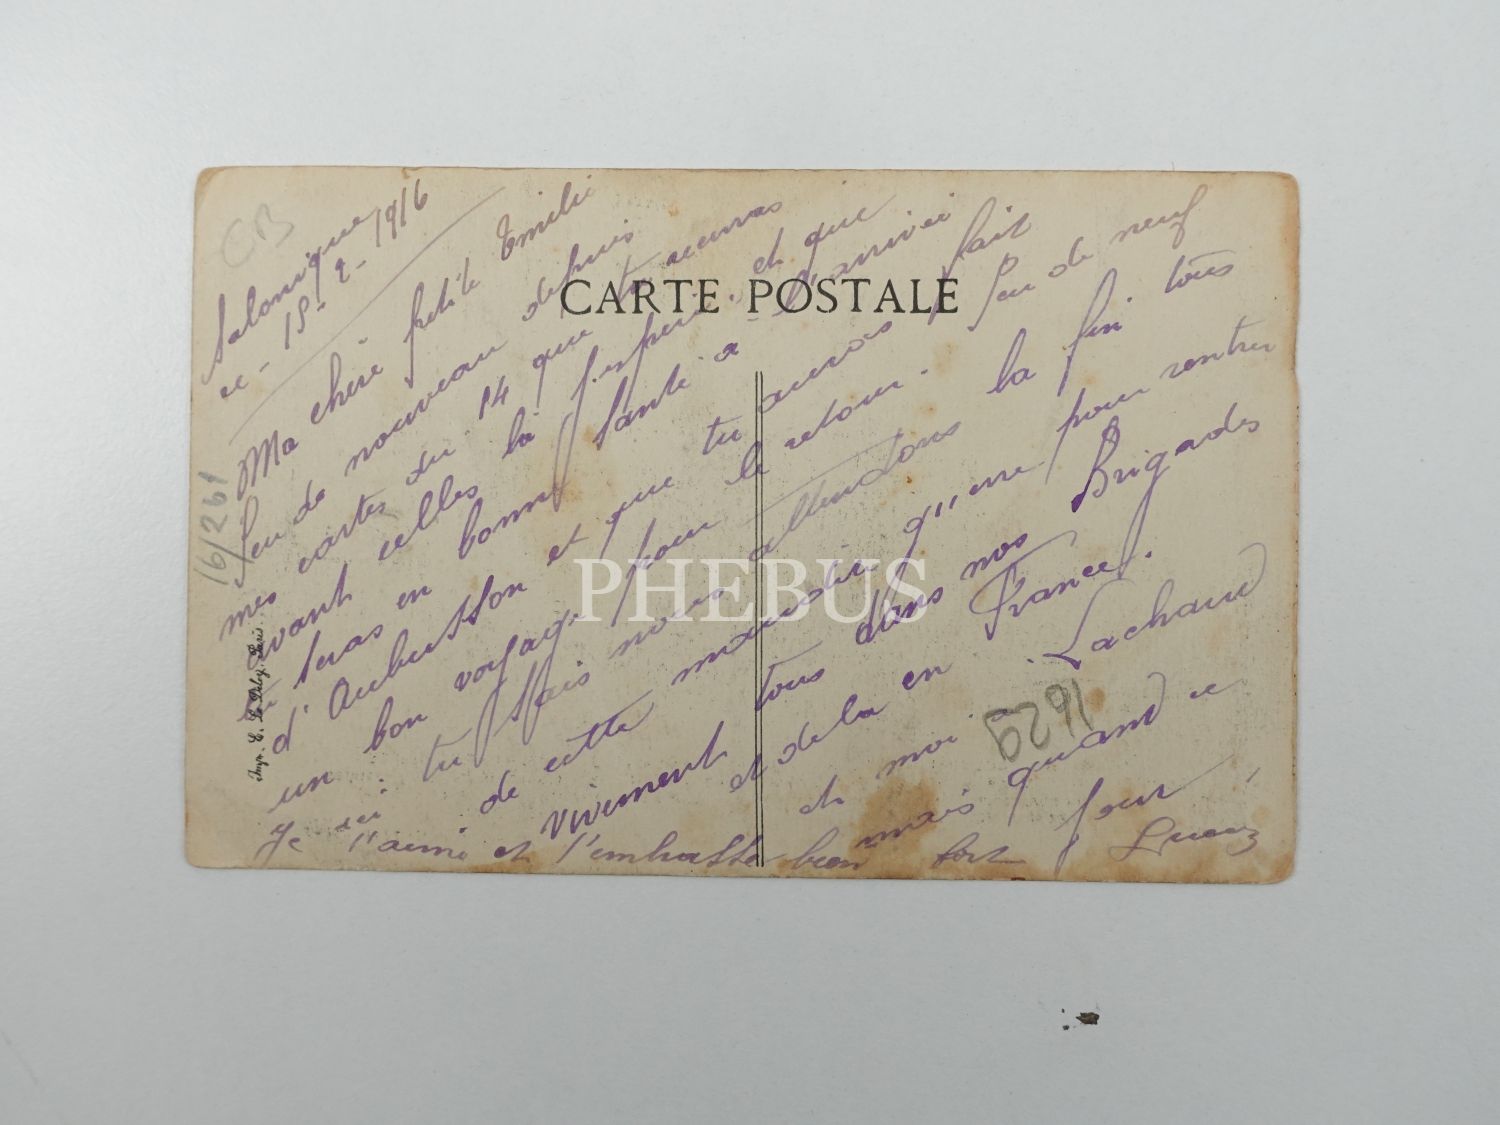 CB
Salonique
ce - 15 - 2 - 1916
Ma chère petite Emilie
Peu de nouveau depuis
mes cartes du 14 que tu recevras
avant celles là j'espère et que
tu seras en bonne santé a l'arrivée
d'Aubusson et que tu auras fait
un bon voyage pour le retour. Peu de neuf
ici. tu sais nous attendons la fin tous
de cette maudite guerre pour rentrer
vivement tous dans nos Brigades
et de la en France.
et moi . Lachaud
mais quand ce
jour !
Je t'aime et t'embrasse bien fort
CARTE POSTALE
PHEBUS
Imp. E. Le Deley, Paris
16/261
1629